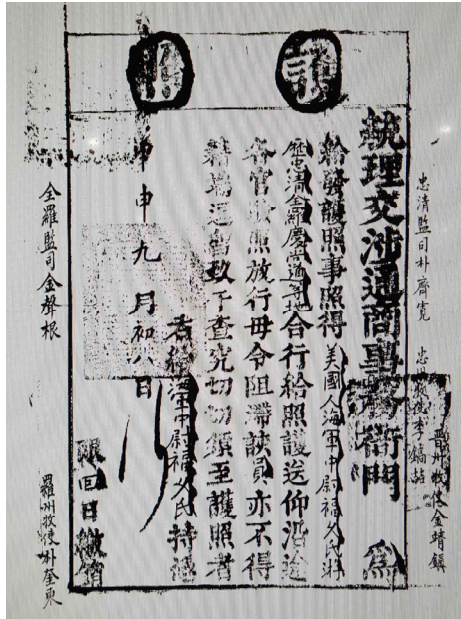 護照
忠清監司朴齊寬 牧使李鎬喆
晋州牧使金靖鎭
統理交涉通商事務衙門 爲
給發護照事照得美國人海軍中尉福久氏將
歷忠清全羅慶尚道等地合行給照護送仰沿途
各官驗照放行毋令阻滯該員亦不得
藉端逗留致干查究切切須至護照者
右給海軍中尉福久氏 持憑
甲申九月初八日
限回日繳銷
全羅監司金聲根
羅州牧使朴奎東